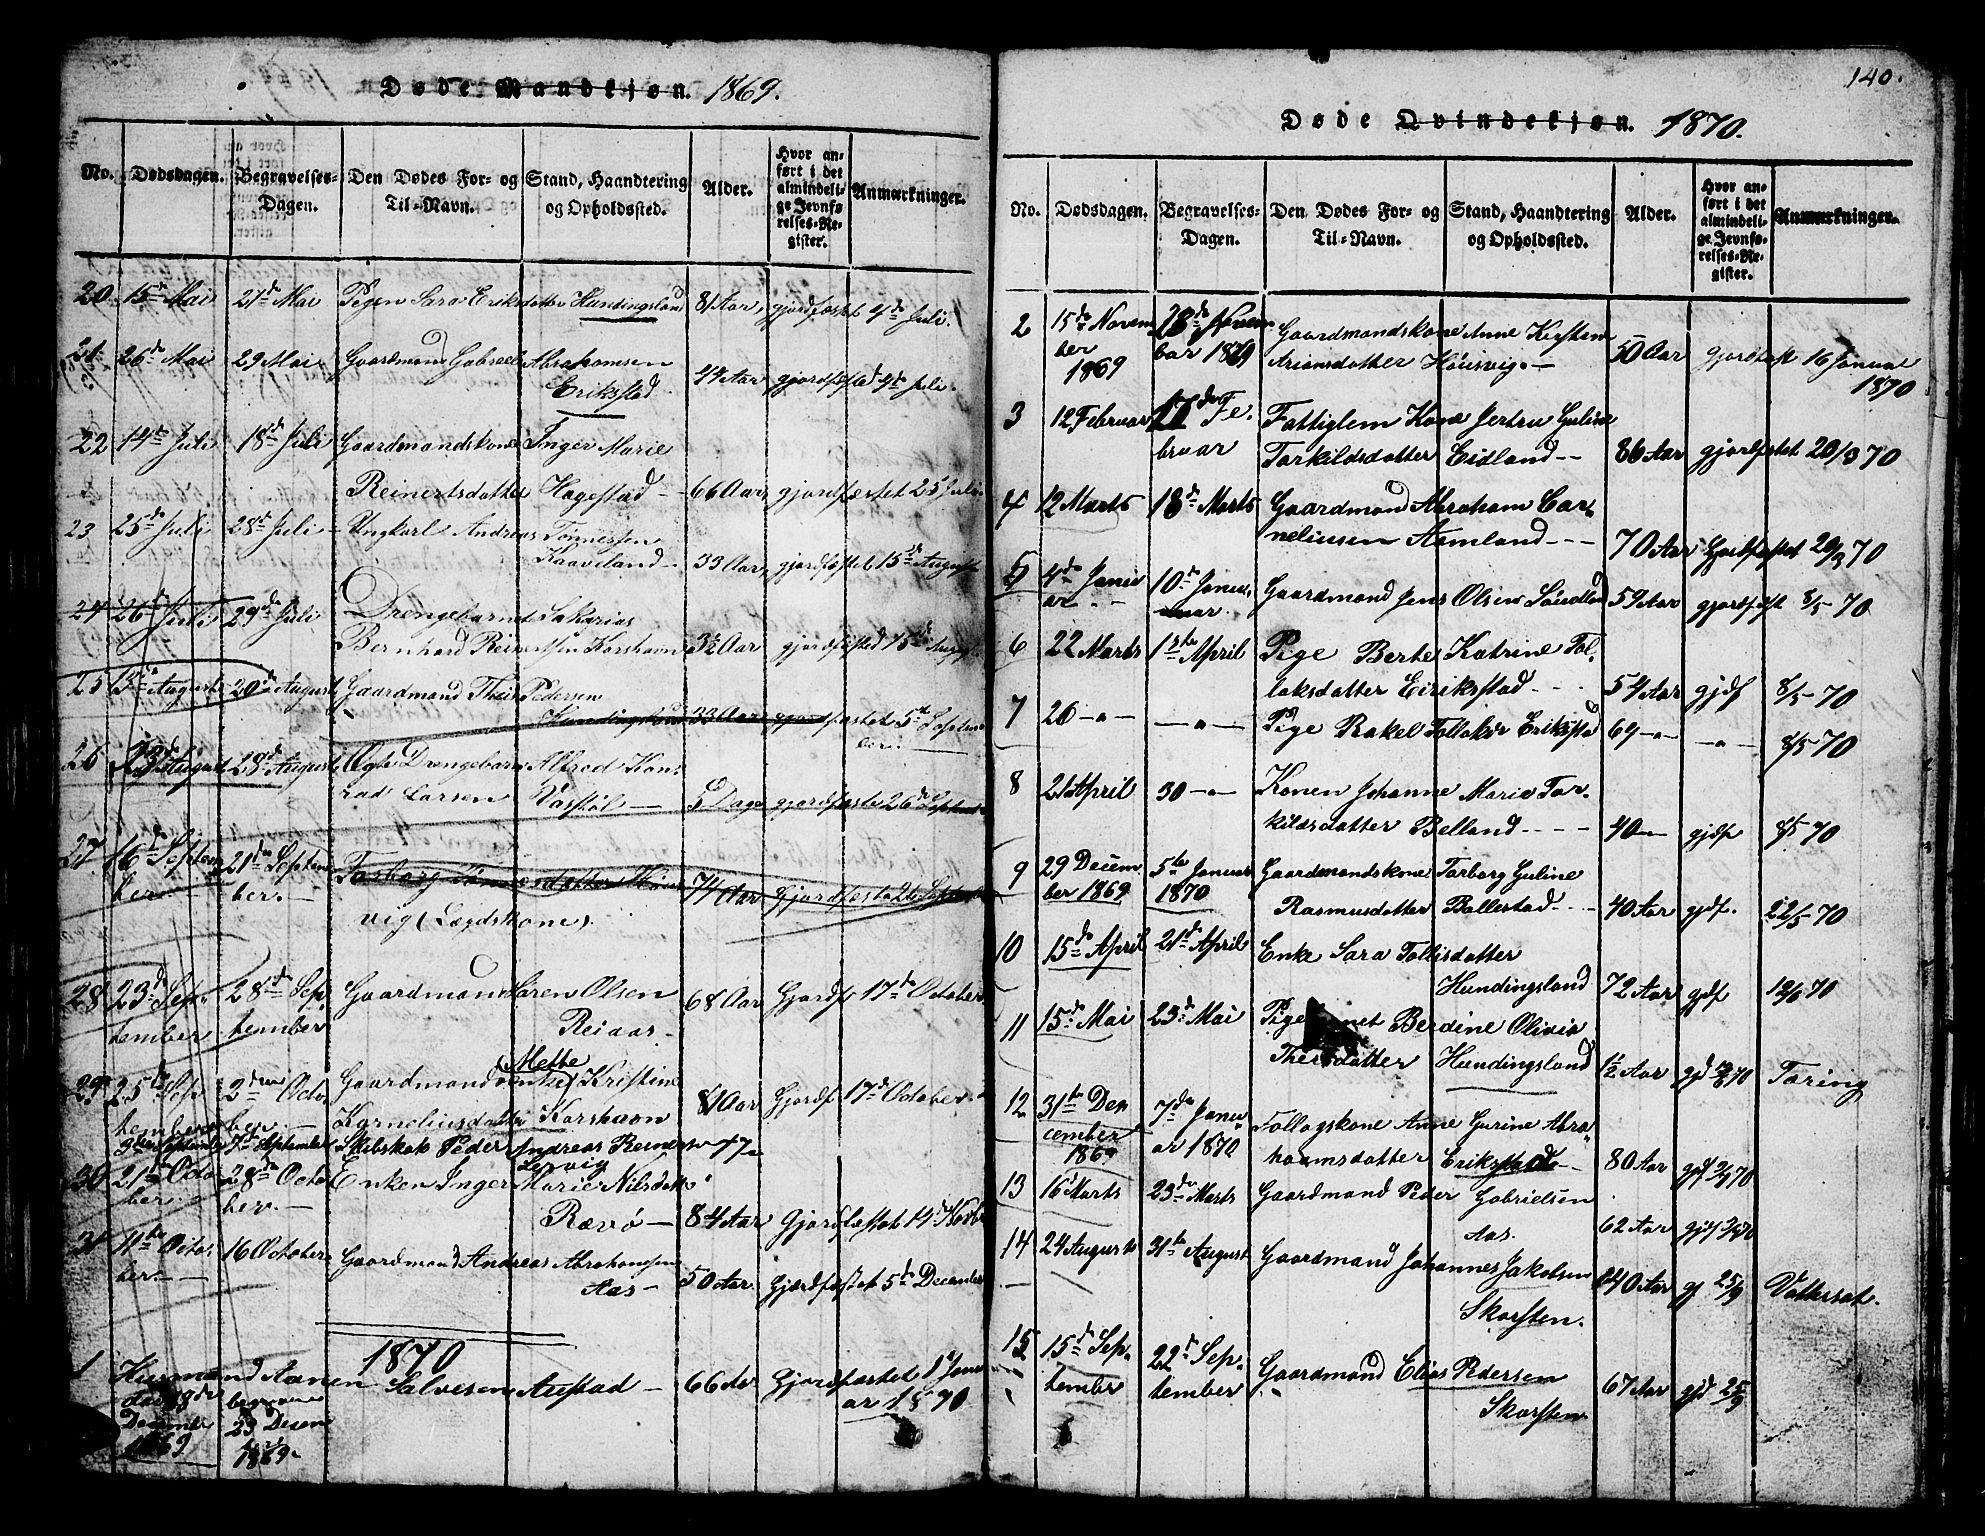 Døde Mandkjøn. 1869.
No. Dødsdagen. Begravelses-Dagen. Den Dødes For- og Til-Navn. Stand, Haandtering og Opholdssted. Alder. Hvor anført i det almindelige Jevnførelses-Register. Anmærkninger.
20 15de Mai 21de Mai Pigen Sara Eriksdatter Hundingsland 81 Aar, gjordfæstet 4de Juli.
21 26de Mai 29 Mai Gaardmand Gabriel Abrahamsen
Erikstad 44 Aar gjordfæsted 4de Juli.
22 14de Juli 18de Juli Gaardmandskone Inger Marie
Reinertsdatter Hagestad 66 Aar, gjordfæstet 25 Juli.
23 25de Juli 28de Juli Ungkarl Andreas Tønnessen
Kaaveland 33 Aar, gjordfæstet 15de August
24 26de Juli 29de Juli Drengebarnet Sakarias
Bernhard Reinertsen Korshavn 3½ Aar gjordfæsted 15de August
25 15de August 20de August Gaardmand Theis Pedersen
Hundingsland 33 Aar gjordfæstet 5te Septem
ber.
26 23de August 28de August Ægte Drengebarn Alfred Kon
rad Larsen Vasstøl 5 Dage gjordfæstet 26de September
27 16de Septem 21de Septem Torborg Tønnesdatter Høies
ber. ber. vig (Lægdskone). 74 Aar Gjordfæstet 26 September
28 23de Sep 28de Sep Gaardmand Søren Olsen 68 Aar Gjordf 17de October
tember tember Reiaas
Mette
29 25de Sep 2den Octo Gaardmandsenke Kristine
tember ber. Korneliusdatter Korshavn 81 Aar Gjordf 17de October
3die September 7de September Skibskok Peder Andreas Reinertsen 17
30 21de Octo 28de Octo Enken Inger Marie Nilsdatter
ber. ber. Rævø 84 Aar Gjordfæstet 14de Novbr
31 11te Octo 16 October Gaardmand Andreas Abrahamsen
ber. Aas 50 Aar Gjordfæstet 5te December
1870
1 Husmand Aanen Salvesen Austad 66 Aar Gjordfæstet 1de Janu
ar 1870.
død 18de December 1869 begraven 23 Desem 1869
140.
Døde Qvindekjøn. 1870.
No. Dødsdagen. Begravelses-Dagen. Den Dødes For- og Til-Navn. Stand, Haandtering og Opholdssted. Alder. Hvor anført i det almindelige Jevnførelses-Register. Anmærkninger.
2 15de Novem 18de Novem Gaardmandskone Anne Kirsten
ber 1869 ber 1869 Ariansdatter Høiisvig. 50 Aar gjordfæst 16 Januar
1870
3 12 Februar 17de Fe Fattiglem Kone Jertru Guline
bruar Torkildsdatter Eidland 86 Aar gjordfæstet 20/3 70
4 12 Marts 18de Marts Gaardmand Abraham Cor
neliusen Aamland 70 Aar Gjordfæstet 20/3 70
5 4de Janu 10de Janu Gaardmand Jens Olsen Sundland 59 Aar gjordfæst 8/5 70
ar ar.
6 22 Marts 1ste April Pige Berte Katrine Tol
laksdatter Eirikstad 54 Aar gjdf 8/5 70
7 26 Pige Rakel Tollaksdr Erikstad 69 8/5 70
8 21 April 30 Konen Johanne Marie Tor
kildsdatter Belland 40 gjdf 8/5 70
9 29 Decem 5te Januar Gaardmandskone Torborg Guline
ber 1869 1870 Rasmusdatter Ballestad 40 Aar gjdf. 22/5 70
10 15de April 21de April Enke Sara Tollisdatter
Hundingsland 72 Aar gjdf 12/6 70
11 15de Mai 23de Mai Pige Berdine Olivie
Theisdatter Hundingsland 1½ Aar gjd 12/6 70 Taring
12 31te De 7de Janu Follagskone Anne Gurine Abra
cember 1869 ar 1870 hamsdatter Erikstad 80 Aar gjf 3/7 70
13 16 Marts 23de Marts Gaardmand Peder Gabrielsen
Aas. 62 Aar gjf 3/7 70
14 24 August 31te August Gaardmand Johannes Jakobsen
Skarsten. 40 Aar gj 25/9 Vattersot.
15 15de Sep 22de Sep Gaardmand Elias Pedersen
tember tember Skarsten 67 Aar gjd 25/9